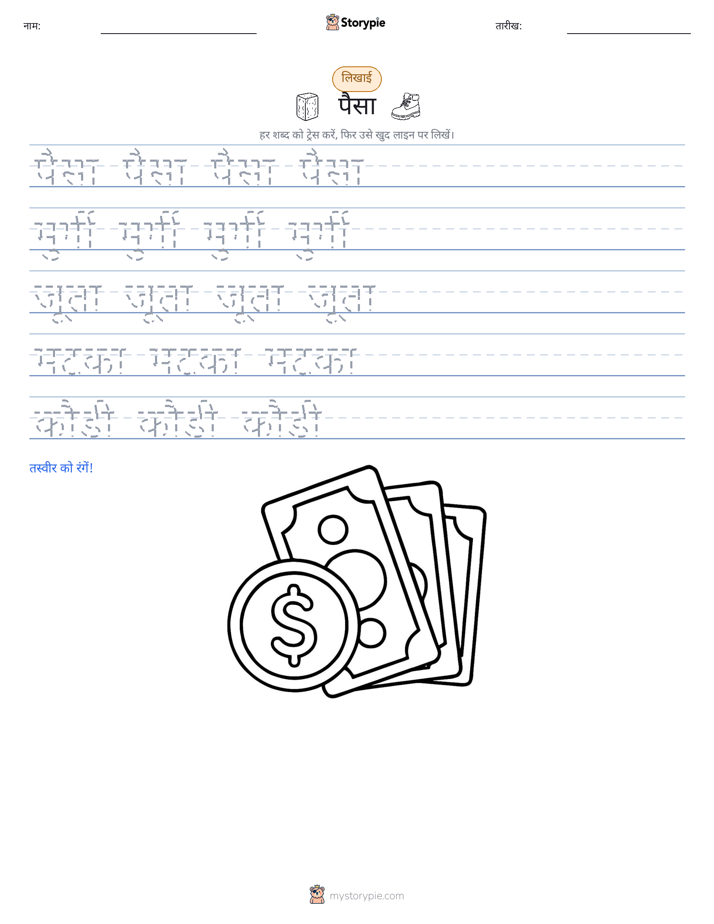 नाम:
Storypie
तारीख:
लिखाई
पैसा
हर शब्द को ट्रेस करें, फिर उसे खुद लाइन पर लिखें।
पैसा पैसा पैसा पैसा
मुर्गी मुर्गी मुर्गी मुर्गी
जूता जूता जूता जूता
मटका मटका मटका
कौडी कौडी कौडी
तस्वीर को रंगें!
$
mystorypie.com